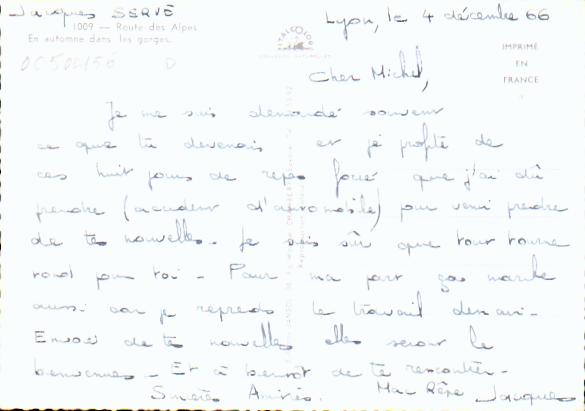 Jacques SERVE
1009 - Route des Alpes
En automne dans les gorges.
Lyon, le 4 décembre 66
IMPRIMÉ
EN
FRANCE
Cher Michel,
Je me suis demandé souvent
ce que tu devenais et je profite de
ces huit jours de repos forcé que j'ai dû
prendre (accident d'automobile) pour venir prendre
de tes nouvelles. Je suis sûr que tout tourne
rond pour toi - Pour ma part ça marche
aussi car je reprends le travail demain.
Envoie de tes nouvelles elles seront les
bienvenues - Et à bientôt de te rencontrer.
Sincères Amitiés. Jacques